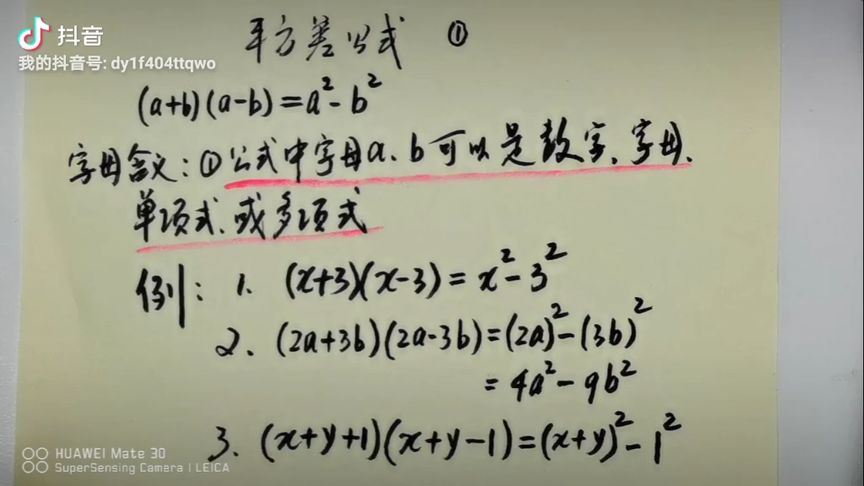 抖音
我的抖音号: dy1f404ttqwo
平方差公式 ①
(a+b)(a-b)=a²-b²
字母含义:①公式中字母a、b可以是数字、字母、
单项式、或多项式
例: 1. (x+3)(x-3)=x²-3²
2. (2a+3b)(2a-3b)=(2a)²-(3b)²
=4a²-9b²
3. (x+y+1)(x+y-1)=(x+y)²-1²
HUAWEI Mate 30
SuperSensing Camera | LEICA